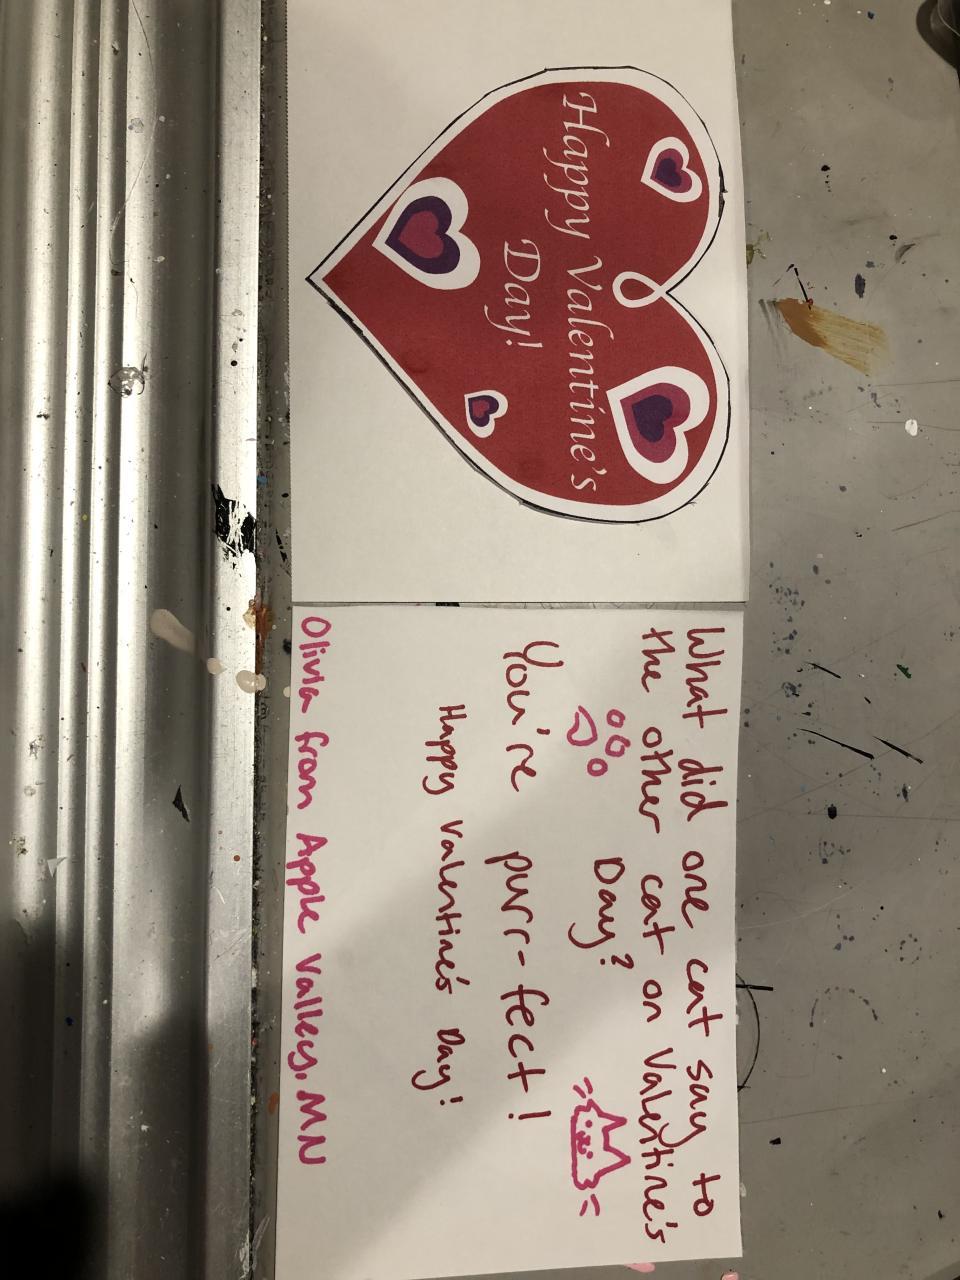 Happy Valentine's
Day!
What did one cat say to
the other cat on Valentine's
Day?
You're purr-fect!
Happy Valentine's Day!
Olivia from Apple Valley, MN